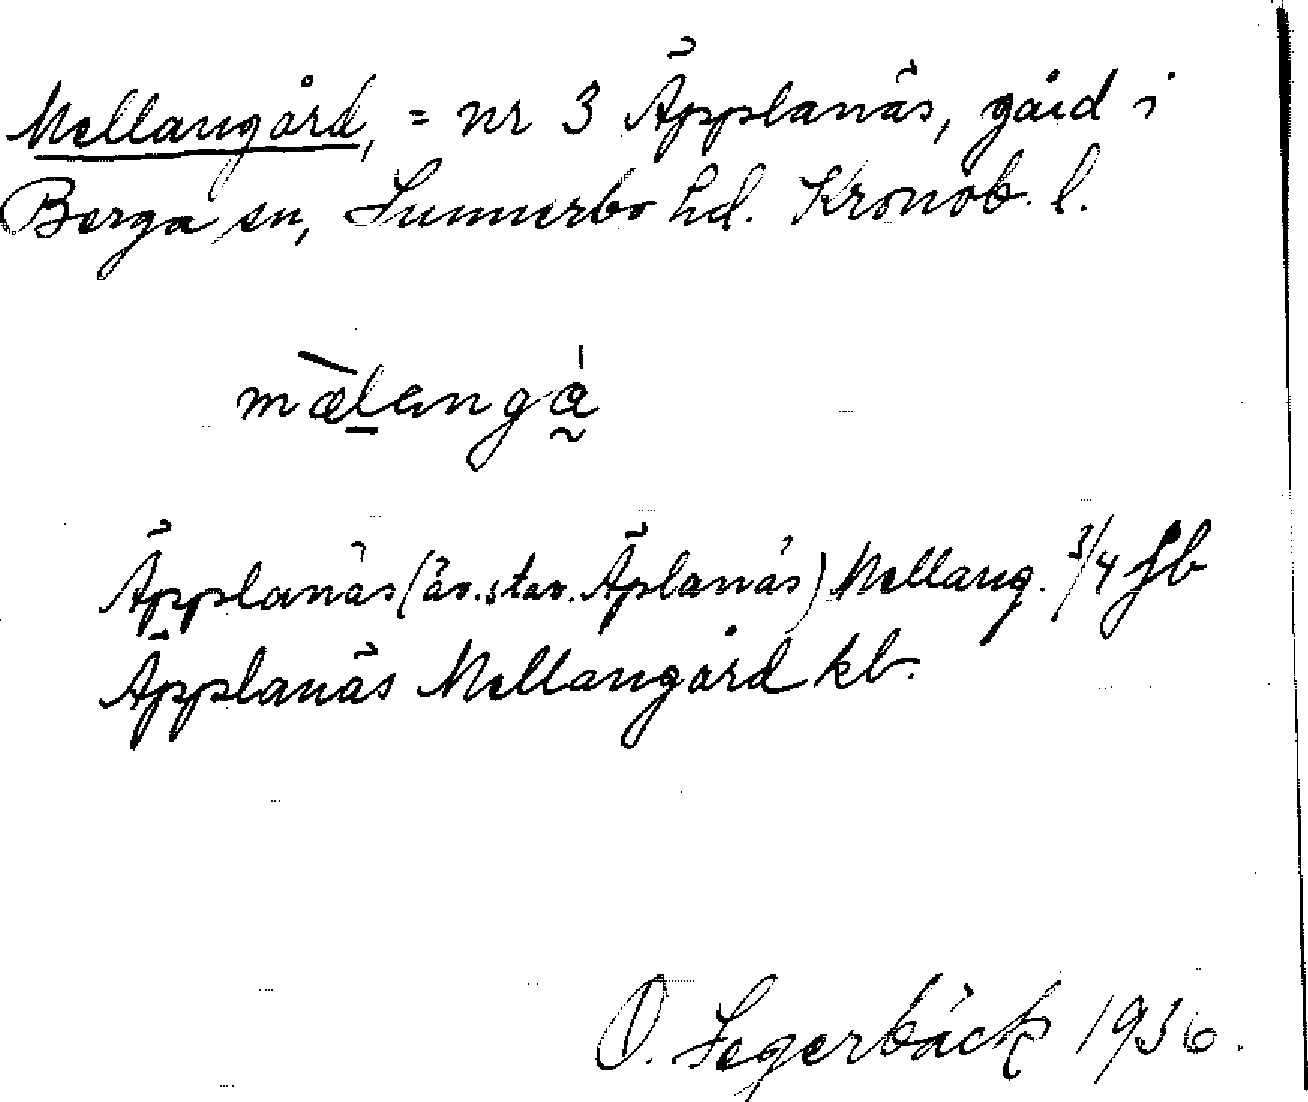 Mellangård, = nr 3 Äpplanäs, gård i
Berga sn, Sunnerbo hd. Kronob. l.
mæ̀langá̰
Äpplanäs (äv. stav. Äplanäs) Mellang. 3/4 jb
Äpplanäs Mellangård kb.
O. Segerbäck 1936.